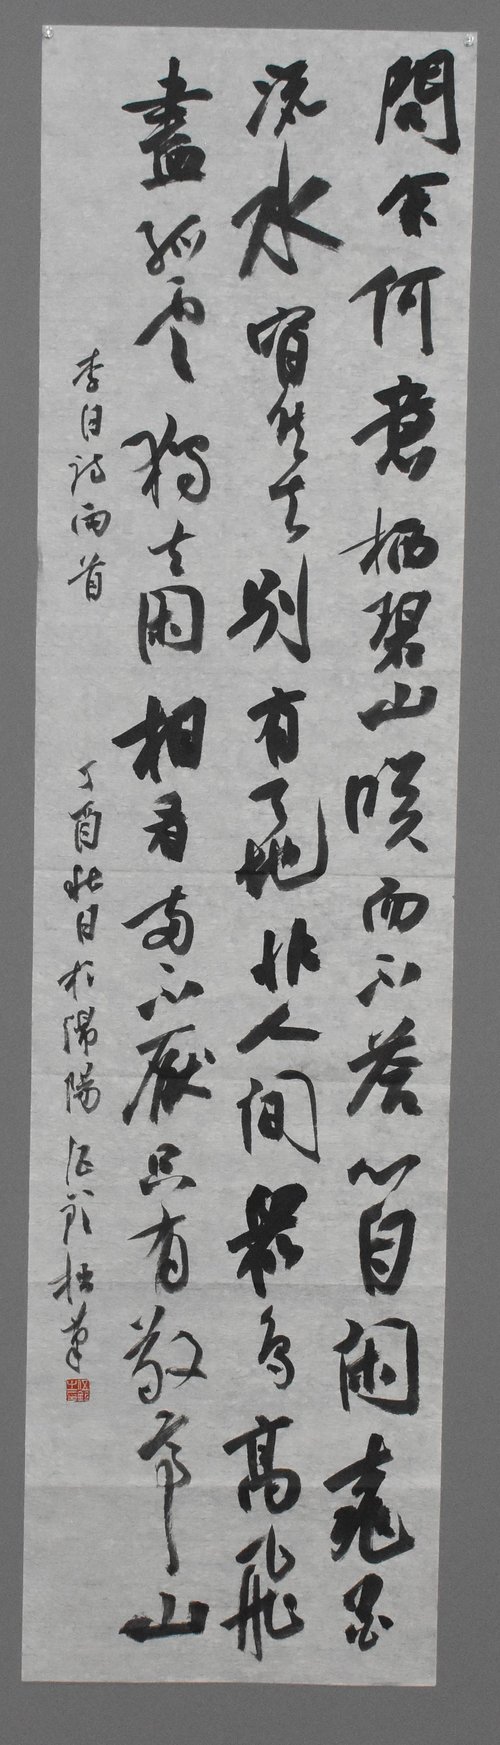 問余何意栖碧山咲而不荅心自閑桃花
流水窅然去別有天地非人間眾鳥高飛
盡孤雲獨去閑相看兩不厭只有敬亭山
李白詩兩首
丁酉秋日於